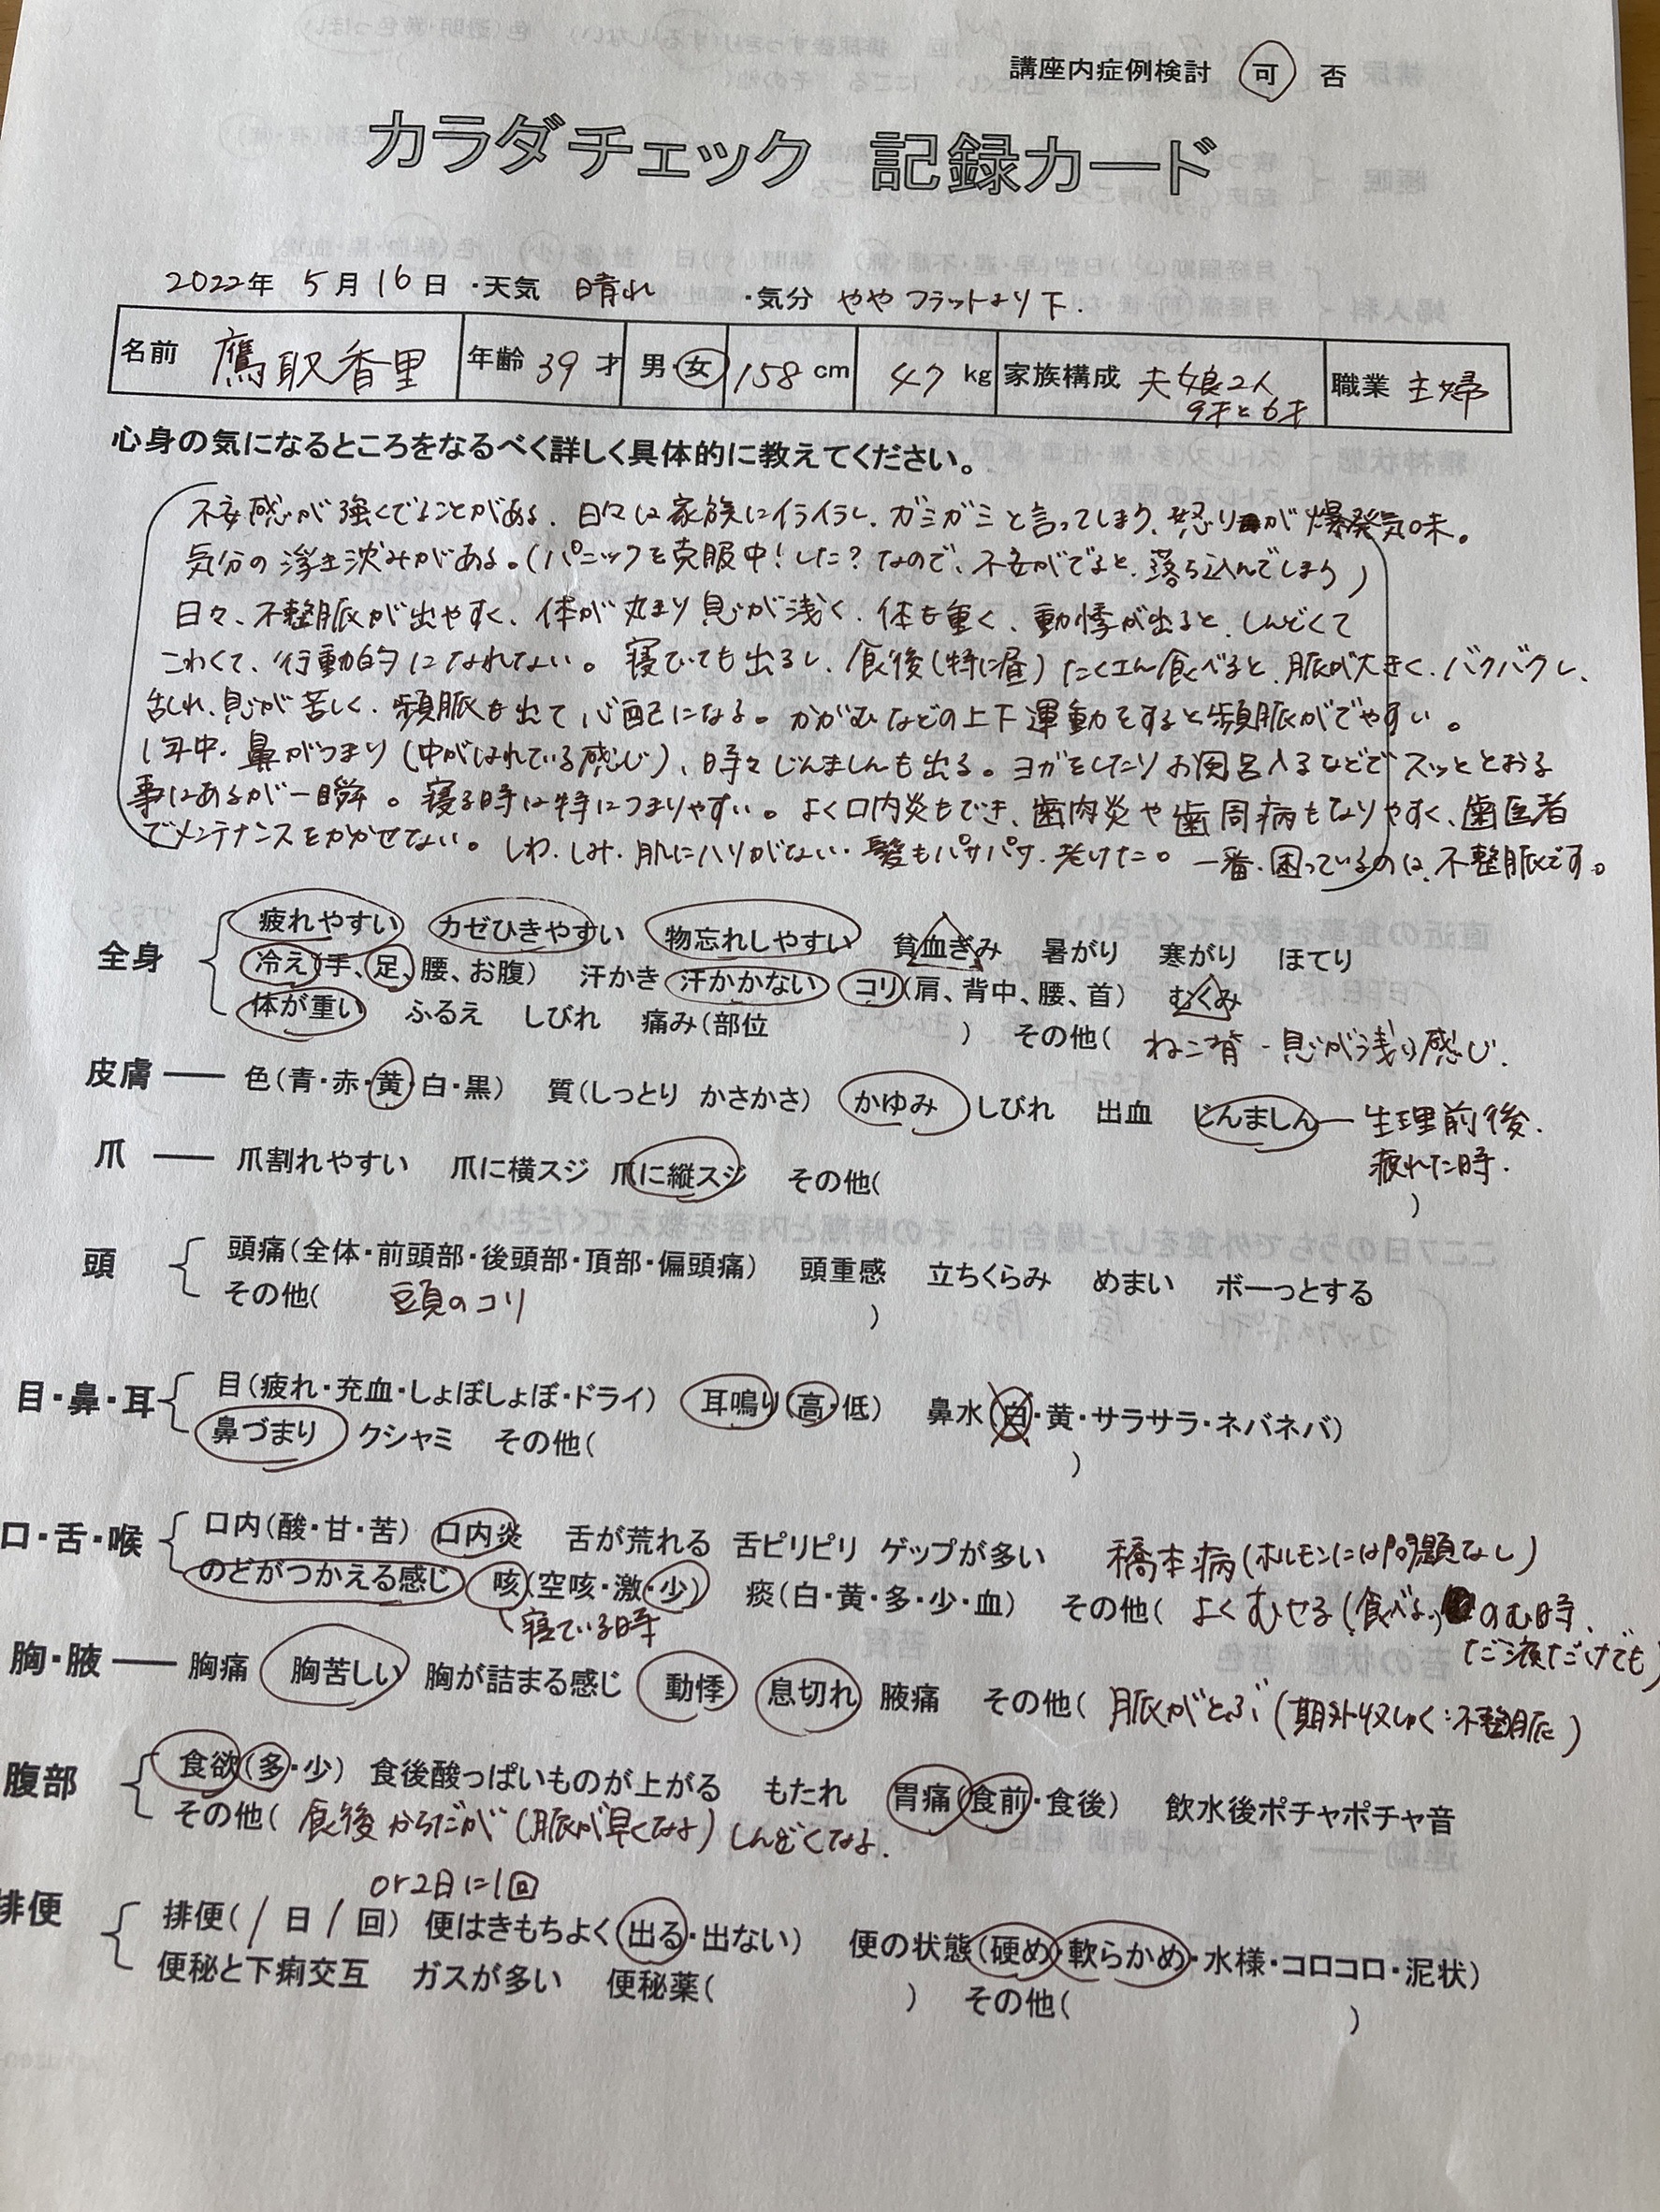 講座内症例検討 可 否
カラダチェック 記録カード
2022年 5月16日 ・天気 晴れ ・気分 やや フラットより下.
名前 鷹取香里 年齢 39 才 男・女 158 cm 47 kg 家族構成 夫 娘2人 職業 主婦
9才と6才
心身の気になるところをなるべく詳しく具体的に教えてください。
不安感が強くでることがある、日々は家族にイライラし、ガミガミと言ってしまう、怒りが爆発気味。
気分の浮き沈みがある。(パニックを克服中!した?なので、不安がでると、落ち込んでしまう)
日々、不整脈が出やすく、体が丸まり息が浅く、体も重く、動悸が出ると、しんどくて
こわくて、行動的になれてない。寝ていても出るし、食後(特に昼)たくさん食べると、脈が大きく、バクバクし、
乱れ、息が苦しく、頻脈も出て心配になる。かがむなどの上下運動をすると頻脈がでやすい。
1年中、鼻がつまり(中がはれている感じ)、時々じんましんも出る。ヨガをしたりお風呂入るなどでスッととおる
事はあるが一瞬。寝る時は特につまりやすい。よく口内炎もでき、歯肉炎や歯周病もなりやすく、歯医者
でメンテナンスをかかせない。しわ、しみ、肌にハリがない・髪もパサパサ、老けた。一番、困っているのは、不整脈です。
全身 疲れやすい カゼひきやすい 物忘れしやすい 貧血ぎみ 暑がり 寒がり ほてり
冷え(手、足、腰、お腹) 汗かき 汗かかない コリ(肩、背中、腰、首) むくみ
体が重い ふるえ しびれ 痛み(部位 ) その他( ねこ背 - 息が浅い感じ.
皮膚 色(青・赤・黄・白・黒) 質(しっとり かさかさ) かゆみ しびれ 出血 じんましん 生理前後.
疲れた時.
爪 爪割れやすい 爪に横スジ 爪に縦スジ その他( )
頭 頭痛(全体・前頭部・後頭部・頂部・偏頭痛) 頭重感 立ちくらみ めまい ボーっとする
その他( 頭のコリ )
目・鼻・耳 目(疲れ・充血・しょぼしょぼ・ドライ) 耳鳴り(高・低) 鼻水(白・黄・サラサラ・ネバネバ)
鼻づまり クシャミ その他( )
口・舌・喉 口内(酸・甘・苦) 口内炎 舌が荒れる 舌ピリピリ ゲップが多い 橋本病(ホルモンには問題なし)
のどがつかえる感じ 咳(空咳・激・少) 痰(白・黄・多・少・血) その他( よくむせる(食べる、のむ時、
寝ている時 だ液だけでも)
胸・腋 胸痛 胸苦しい 胸が詰まる感じ 動悸 息切れ 腋痛 その他( 脈がとぶ(期外収しゅく:不整脈)
腹部 食欲(多・少) 食後酸っぱいものが上がる もたれ 胃痛(食前・食後) 飲水後ポチャポチャ音
その他( 食後からだが(脈が早くなる)しんどくなる.
or2日に1回
排便 排便( 1 日 1 回) 便はきもちよく(出る・出ない) 便の状態(硬め・軟らかめ・水様・コロコロ・泥状)
便秘と下痢交互 ガスが多い 便秘薬( ) その他( )